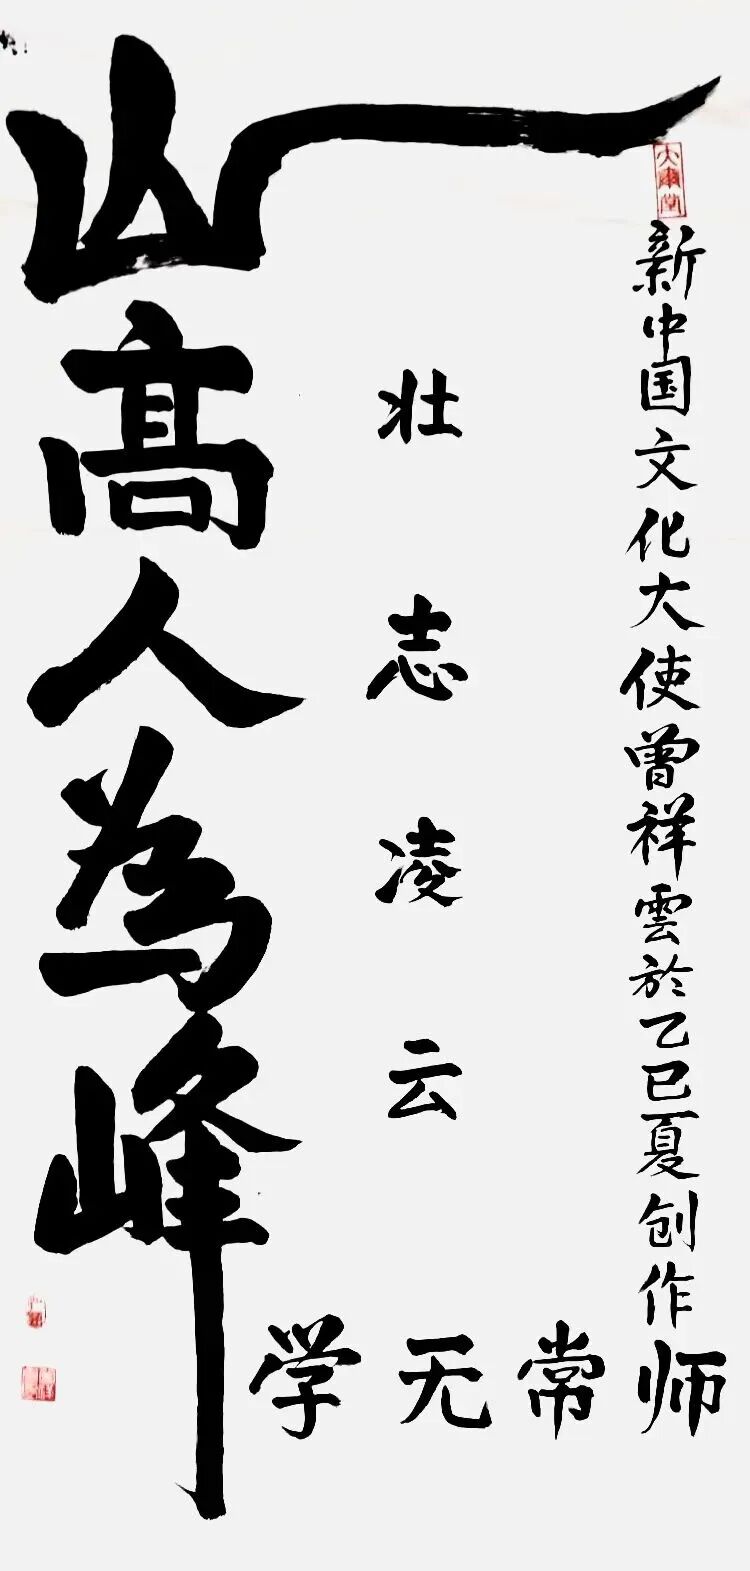 山髙人為峰
壮志凌云
学无常师
新中国文化大使曾祥雲於乙巳夏创作